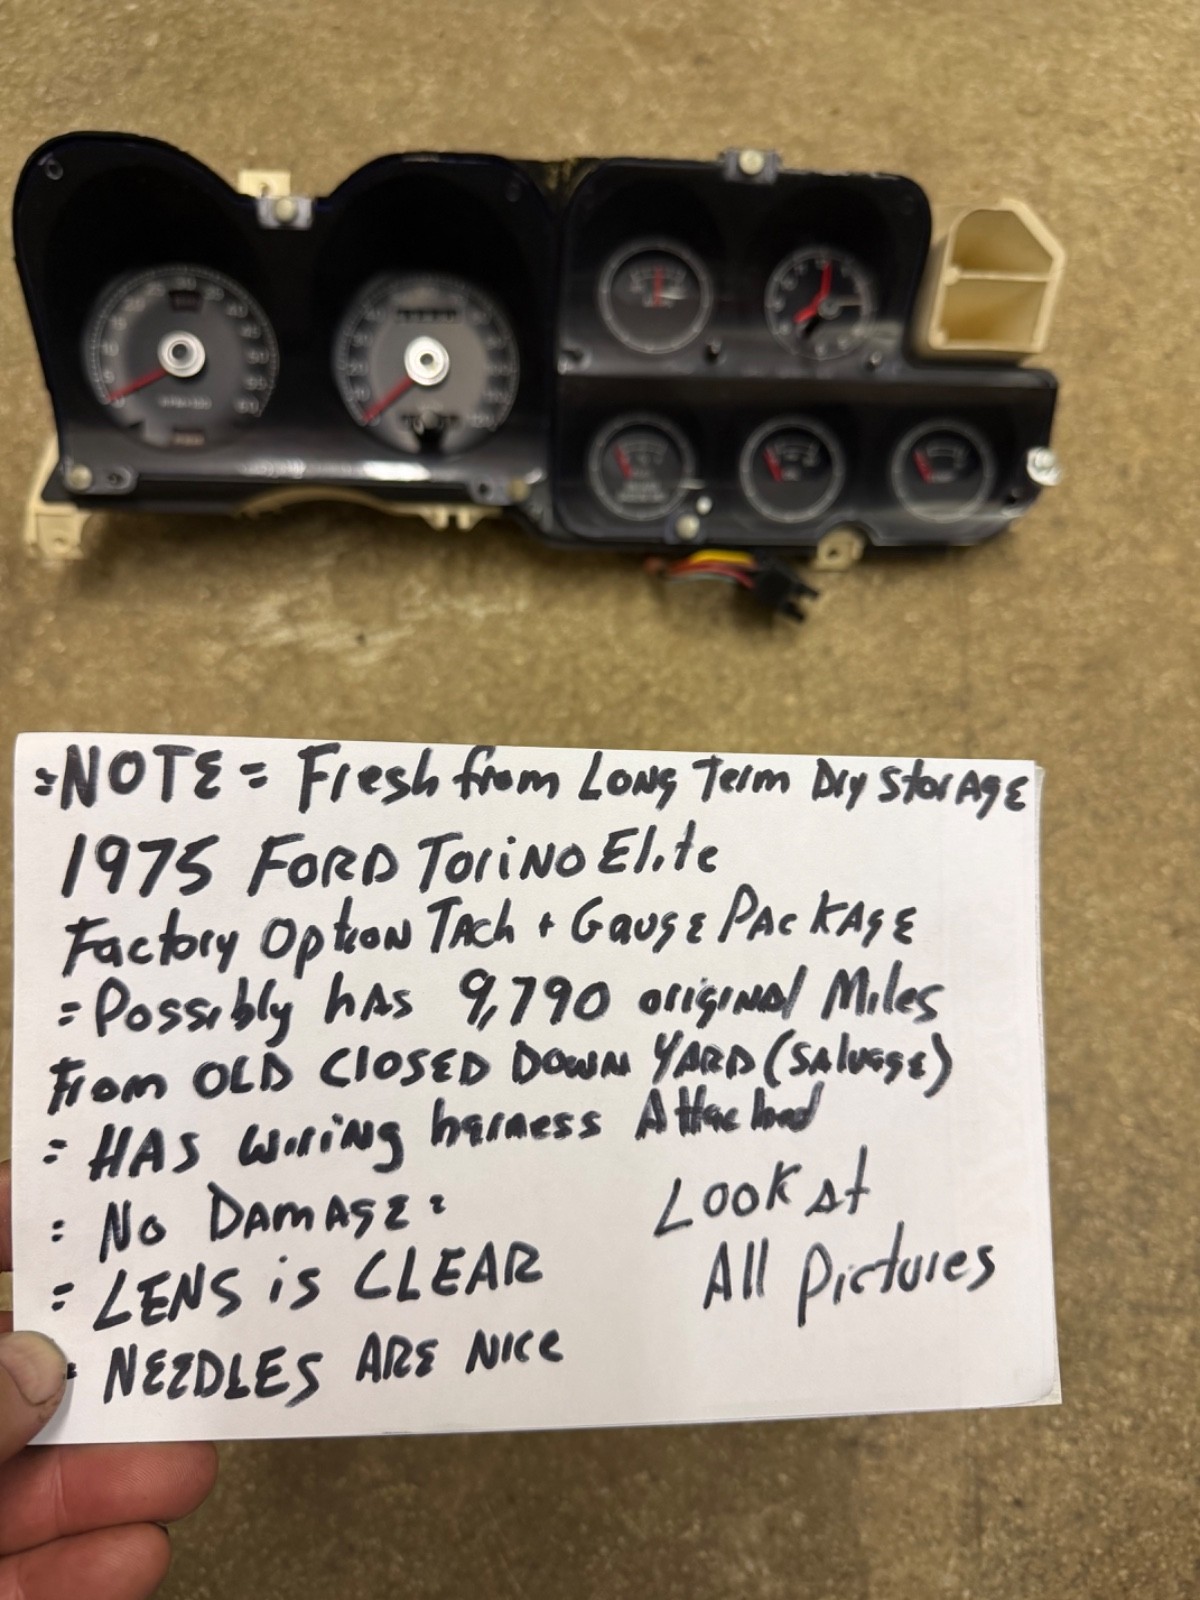 =NOTE= Fresh from Long Term Dry Storage
1975 FORD Torino Elite
Factory Option TAch + Gauge PACKAGE
= Possibly hAs 9,790 original Miles
From OLD CLOSED DOWN YARD (SALvage)
= HAS wiring harness Attached
= No DAMAGE=
= LENS is CLEAR
= NEEDLES ARE NICE
Look At
All Pictures